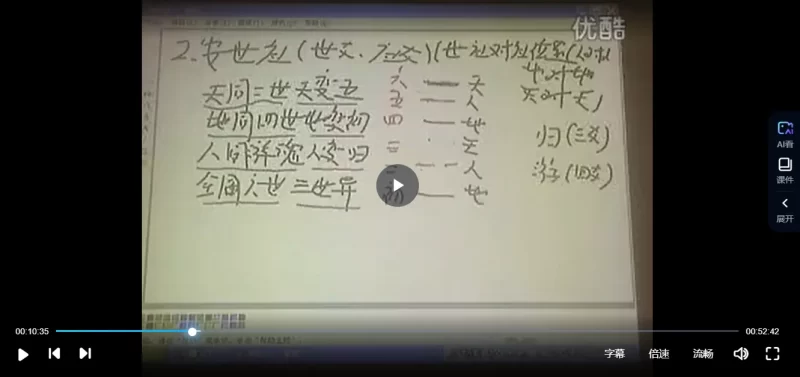 优酷
2.安世应(世爻、应爻)(世应对应位置(人对人
地对地
天对天)
天同二世天变五 六 天
五 人
地同四世地变初 四 地
归(三爻)
人同游魂人变归 三 天
二 人
游(四爻)
全同六世三世异 初 地
AI看
课件
展开
00:10:35
00:52:42
字幕 倍速 流畅